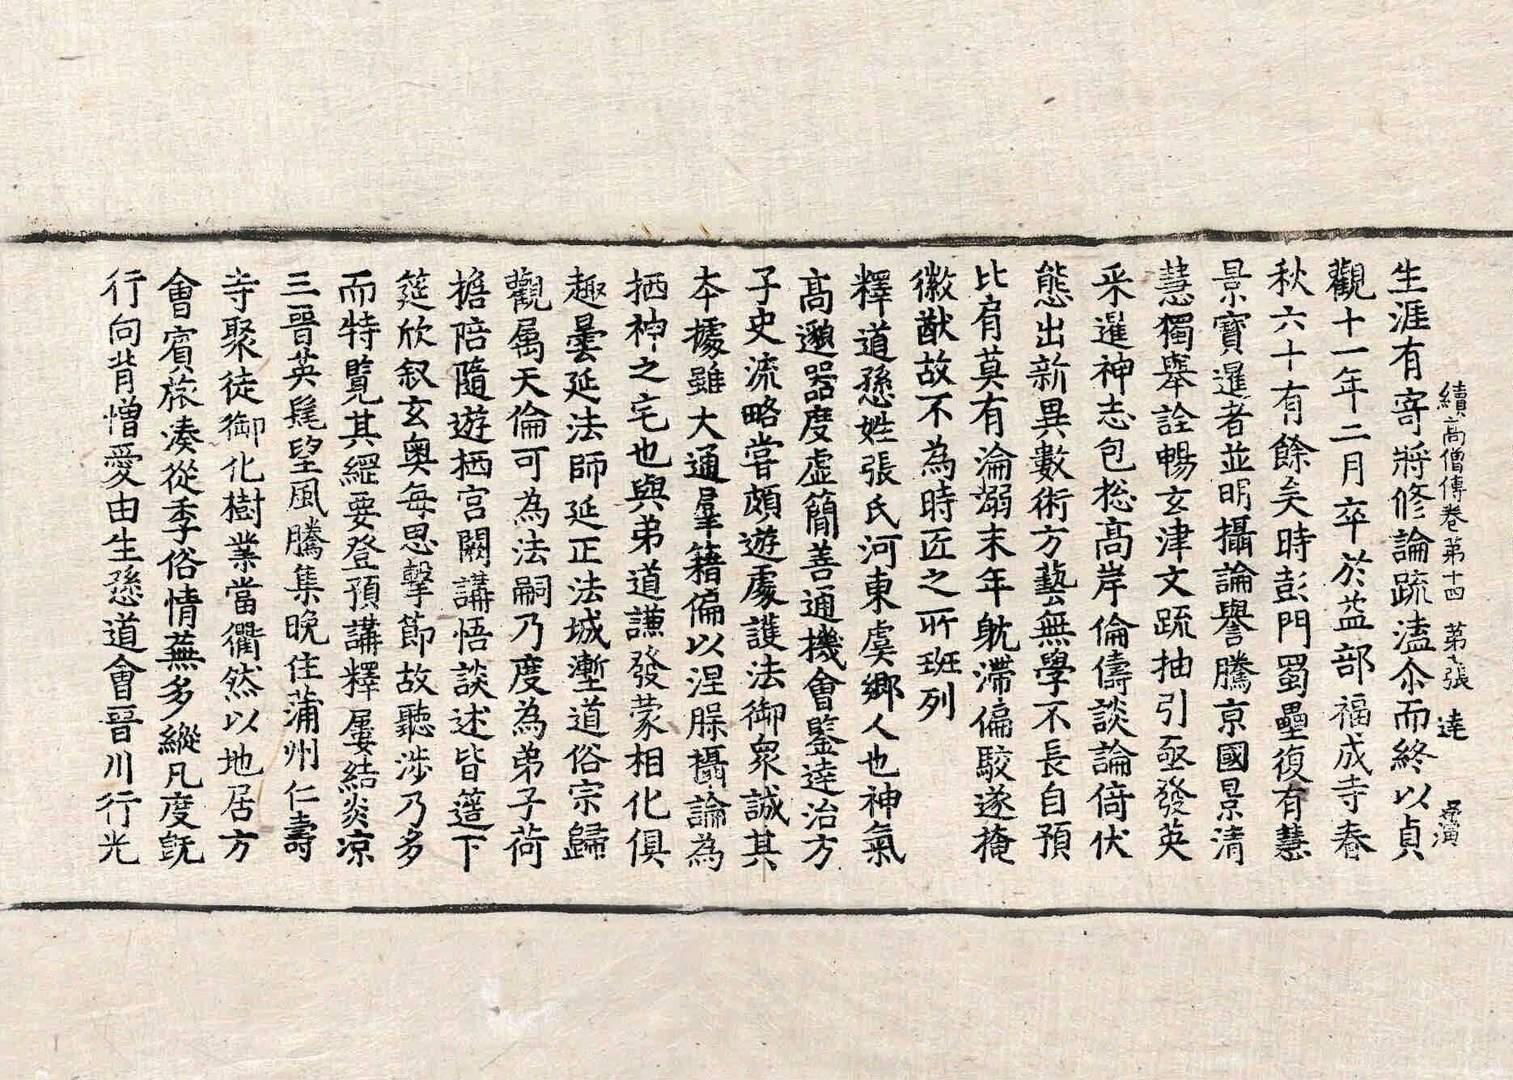 續高僧傳卷第十四 第七張 達
生涯有寄將修論䟽溘尒而終以貞
觀十一年二月卒於益部福成寺春
秋六十有餘矣時彭門蜀壘復有慧
景寶暹者並明攝論譽騰京國景清
慧獨舉詮暢玄津文䟽抽引亟發英
采暹神志包揔髙岸倫儔談論倚伏
態出新異數術方藝無學不長自預
比肩莫有淪溺末年躭滯偏駮遂掩
徽猷故不為時匠之所班列
釋道愻姓張氏河東虞鄉人也神氣
髙邈器度虛簡善通機會鑒達治方
子史流略嘗頗遊處護法御衆誠其
本據雖大通羣籍偏以涅槃攝論為
栖神之宅也與弟道謙發蒙相化俱
趣曇延法師延正法城壍道俗宗歸
觀属天倫可為法嗣乃度為弟子荷
擔陪隨遊栖宮闕講悟談述皆簉下
筵欣叙玄奥每思擊節故聽涉乃多
而特覽其綱要登預講釋屢結炎凉
三晉英髦望風騰集晚住蒲州仁壽
寺聚徒御化樹業當衢然以地居方
會賓旅湊從季俗情蕪多縱凡度旣
行向背憎愛由生愻道會晉川行光